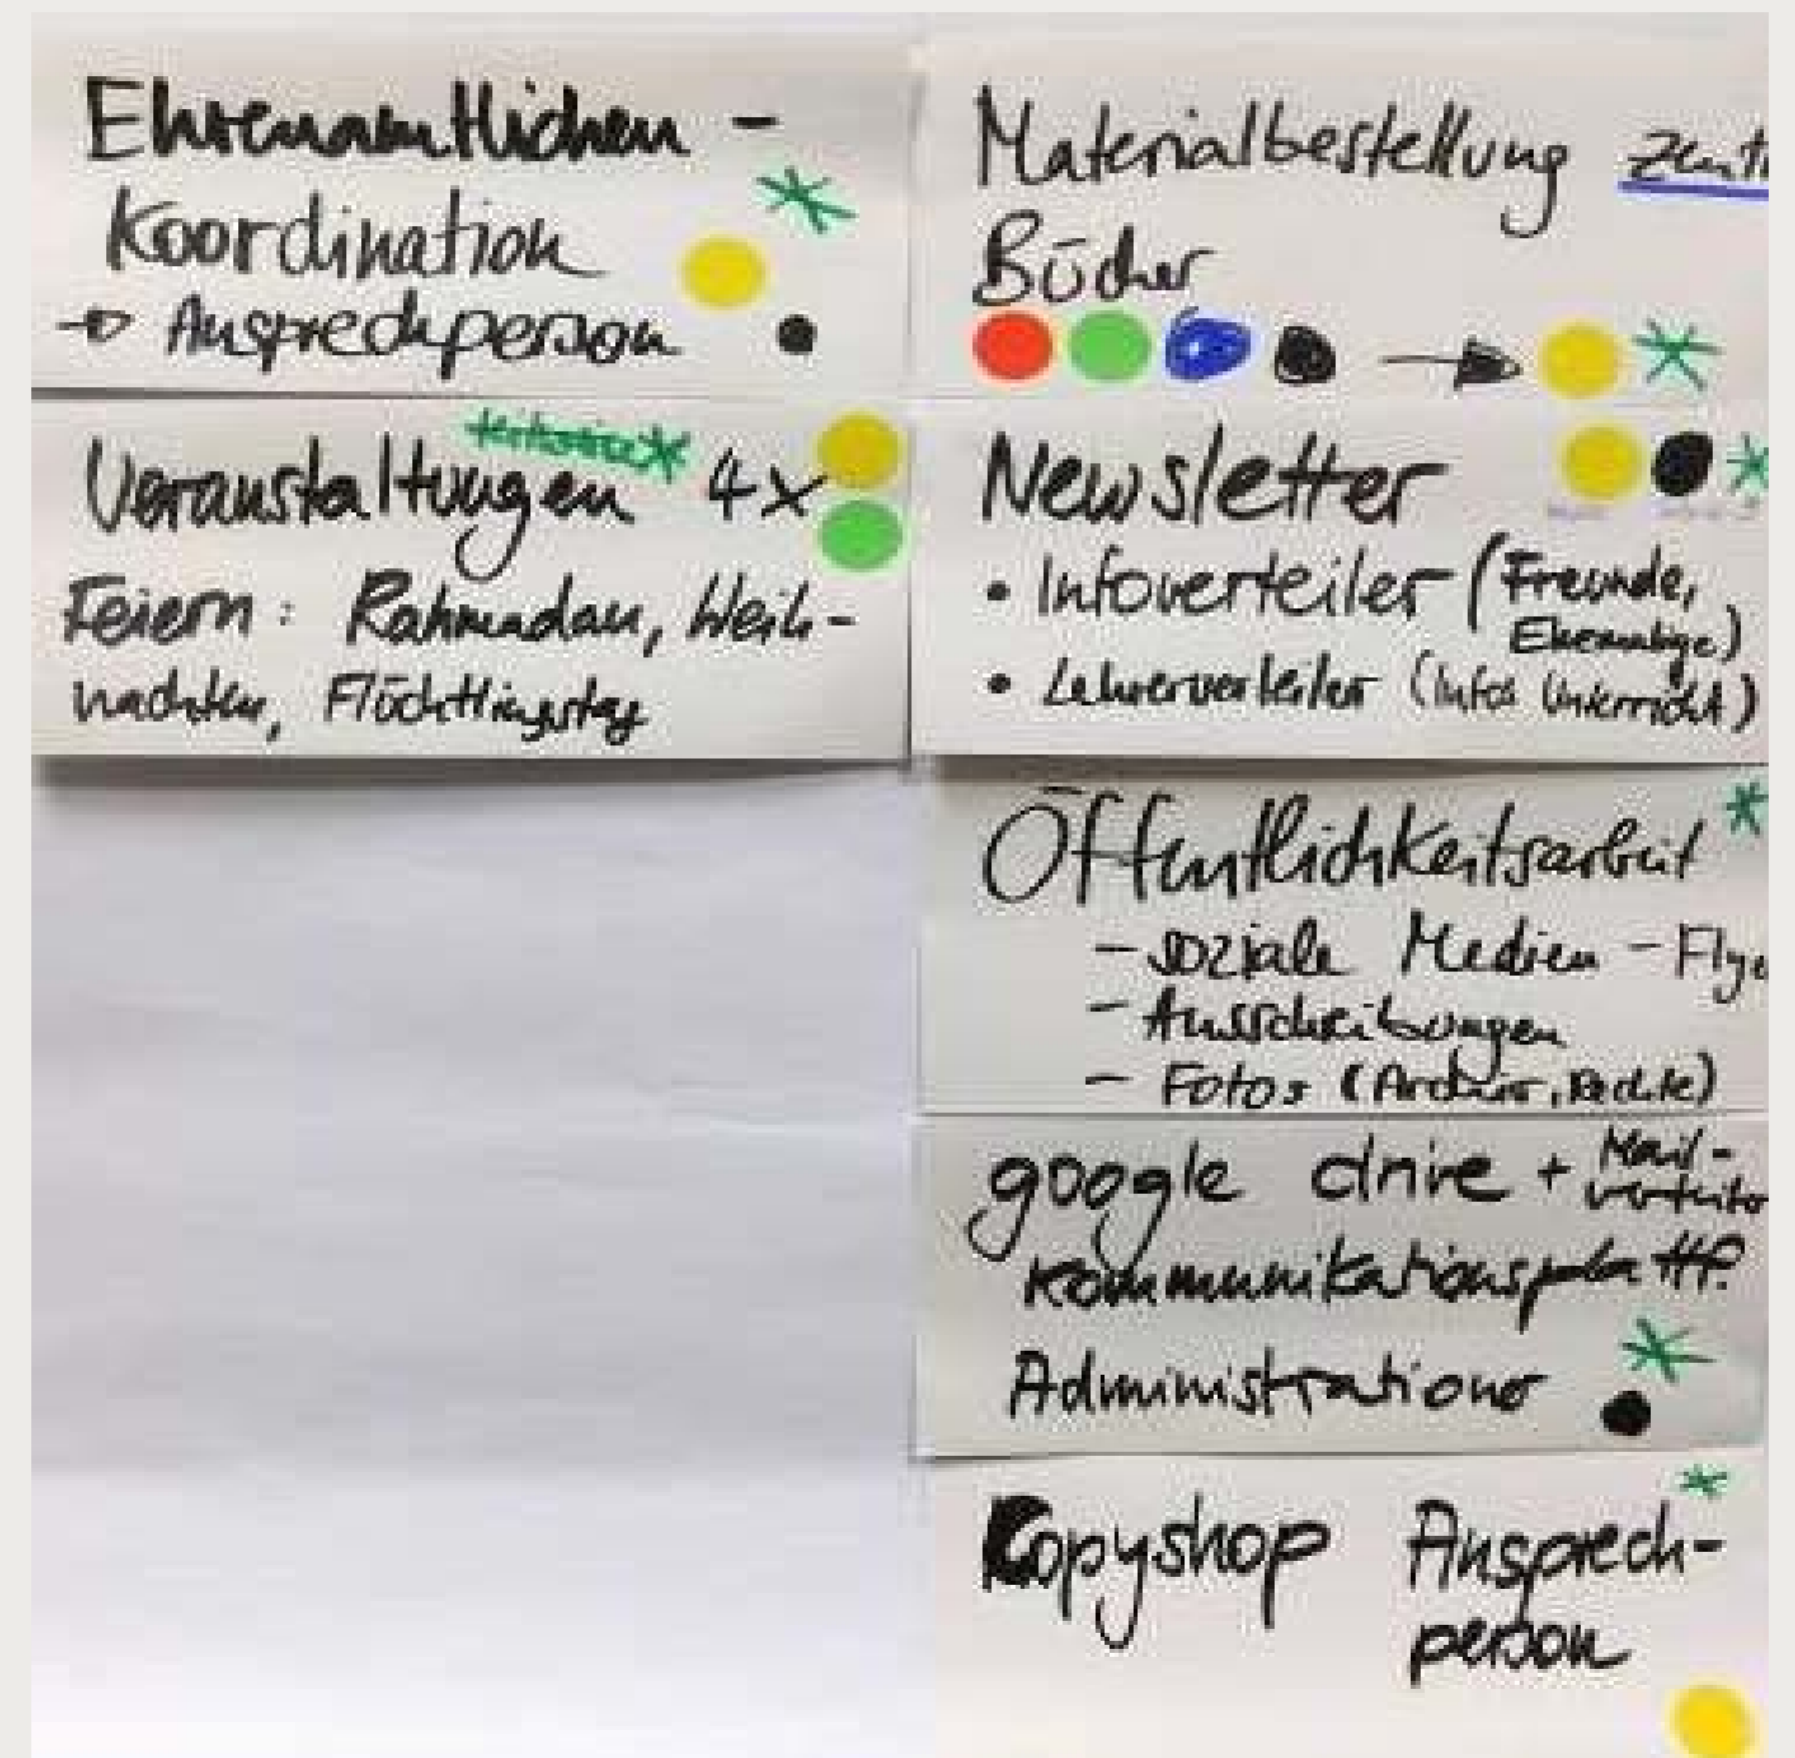 Ehrenamtlichen -
Koordination
→ Ansprechperson
Veranstaltungen 4x
Feiern: Rahmadan, Weih-
nachten, Flüchtlingstag
Materialbestellung
Bücher
Newsletter
• Infoverteiler (Freunde,
Ehemalige)
• Lehrerverteiler (Infos Unterricht)
Öffentlichkeitsarbeit
- soziale Medien -
- Ausschreibungen
- Fotos (Archiv, Rechte)
google drive + Mail-
verteiler
Kommunikationsplattf.
Administration
Copyshop Ansprech-
person